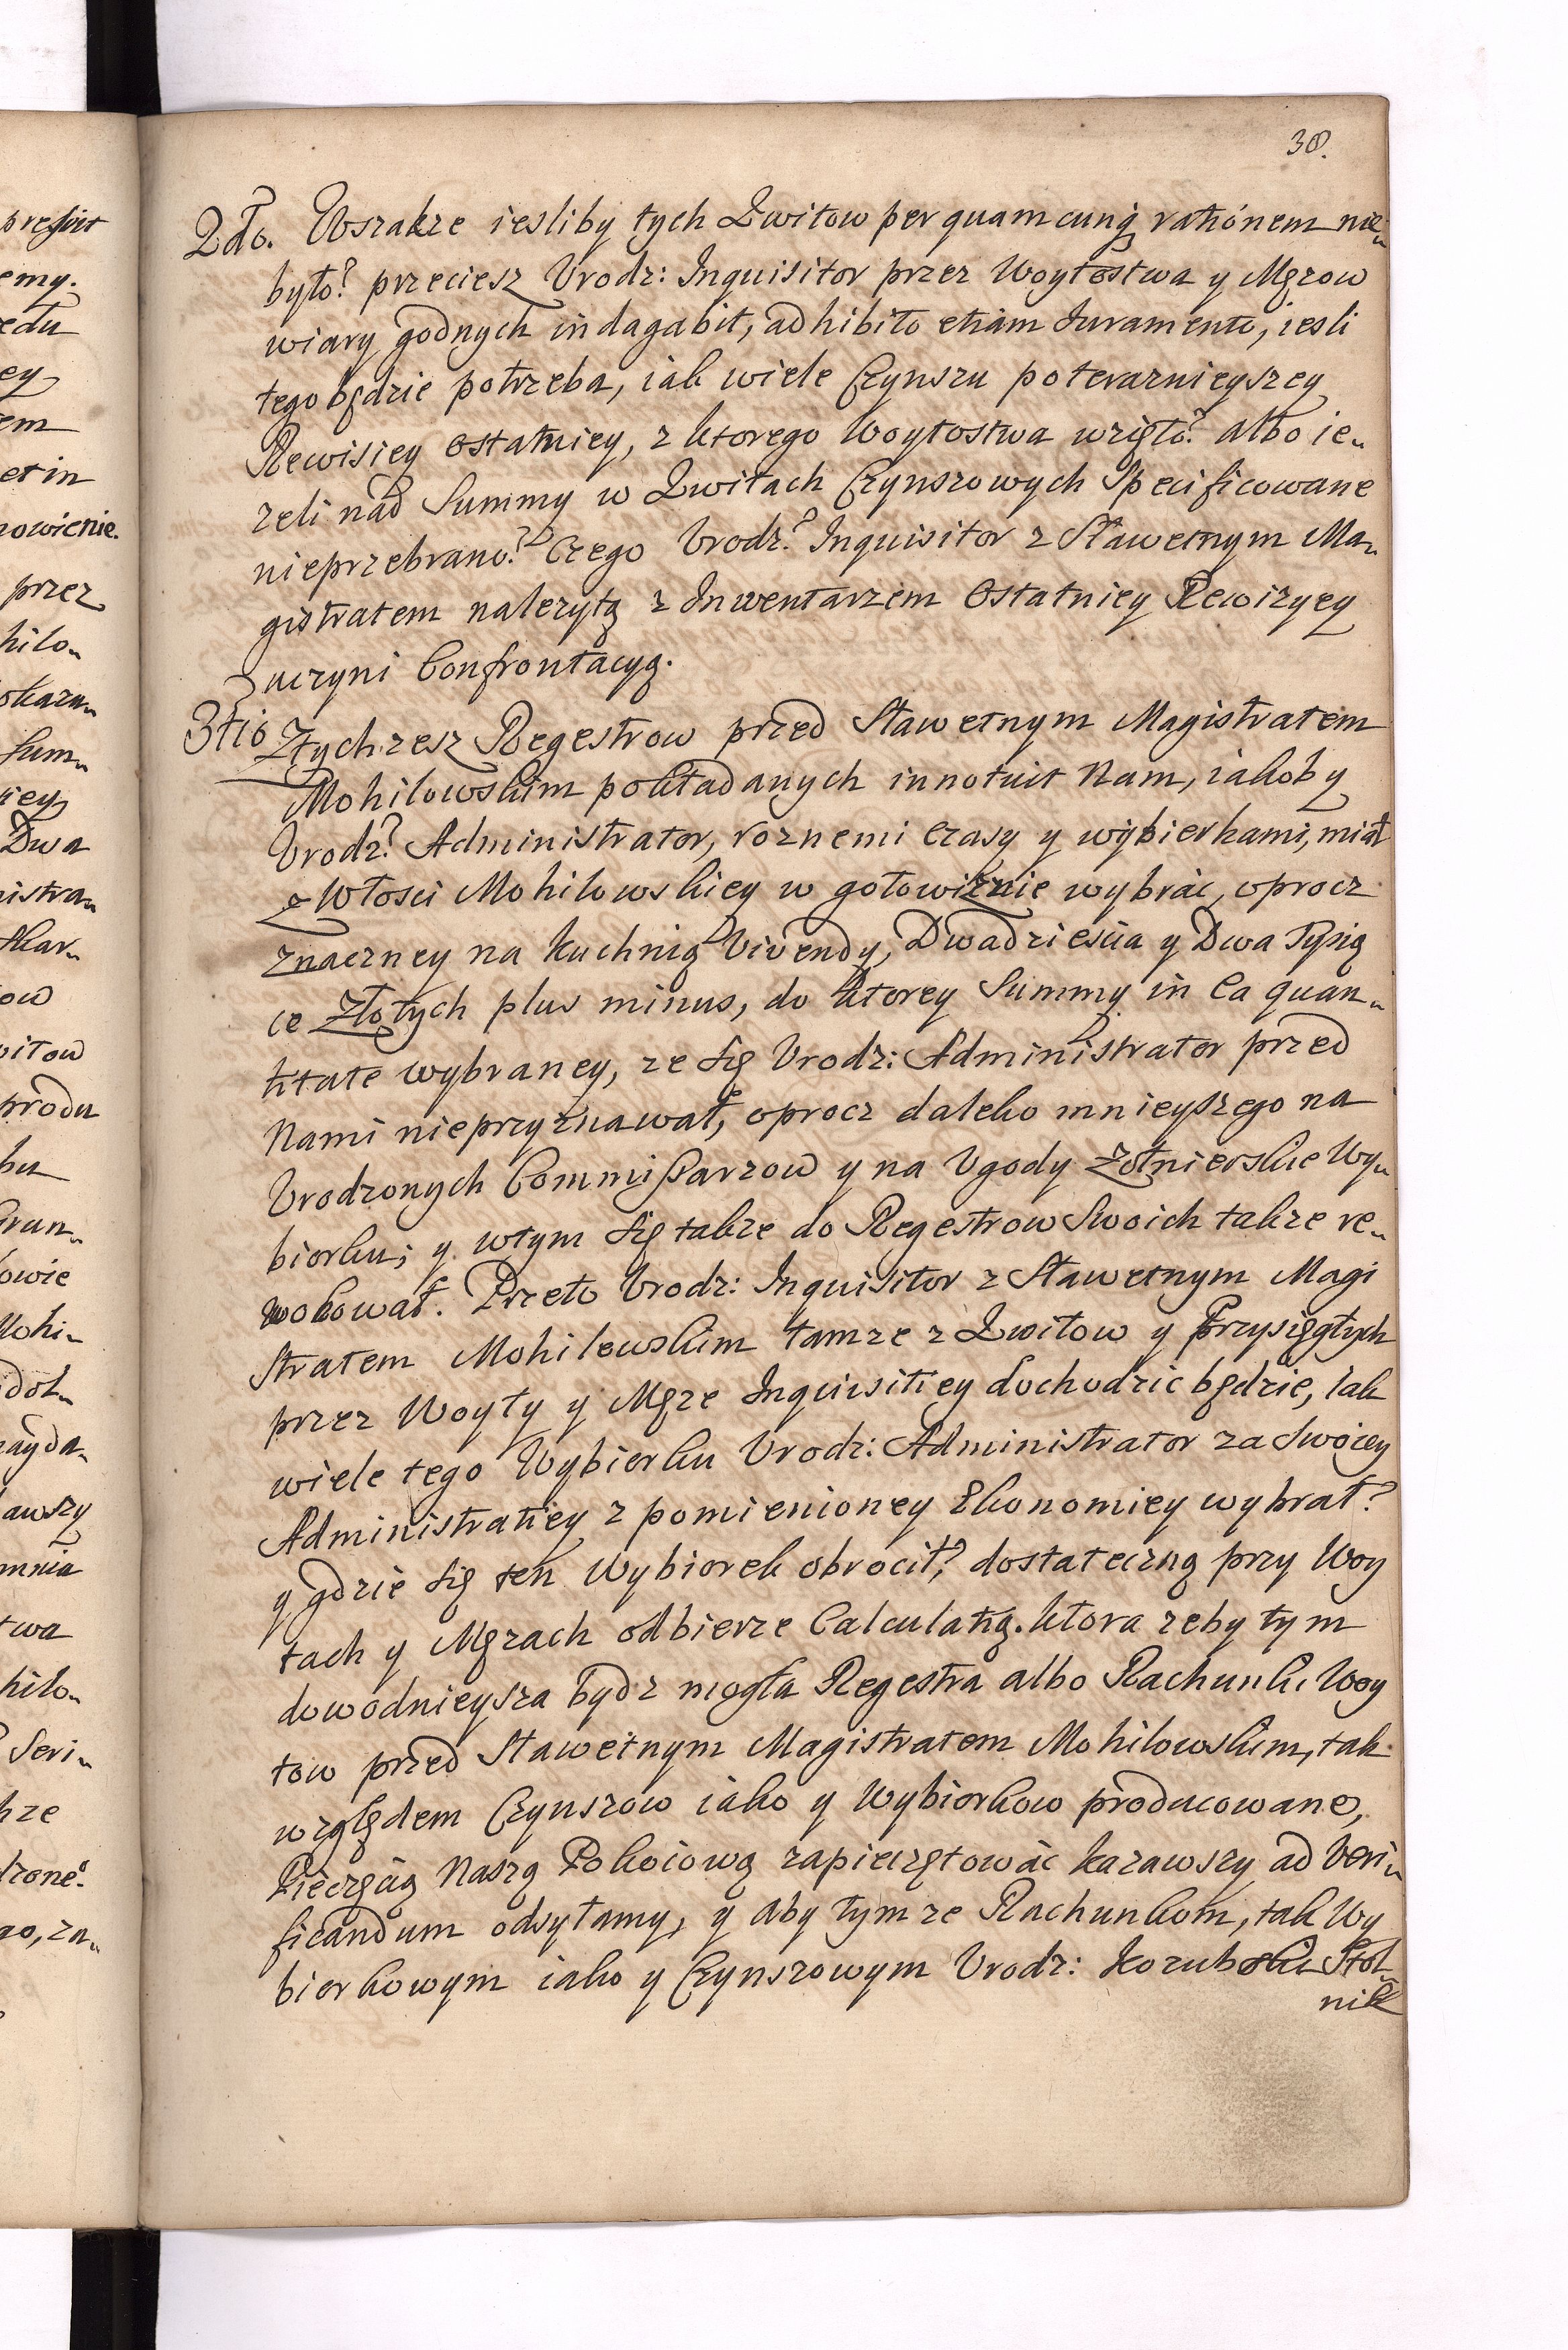 38.
2do. Wszakze iesliby tych Kwitow per quamcunq, rationem nie-
było? przeciesz Urodz: Inquisitor przez Woytostwa y Męzow
wiary godnych indagabit, adhibito etiam Iuramento, iesli
tego będzie potrzeba, iak wiele Czynszu poteraznieyszey
Rewisiey ostatniey, z ktorego Woytostwa wzięto? albo ie-
zeli nad Summy w Kwitach Czynszowych Specificowane
nieprzebrano? Czego Urodz? Inquisitor z Sławetnym Ma-
gistratem nalezytą z Inwentarzem Ostatniey Rewizyey
uczyni Confrontacyą.
3tio Ztychzesz Regestrow przed Sławetnym Magistratem
Mohilowskim pokładanych innotuit Nam, iakoby
Urodz? Administrator, roznemi czasy y wybierkami, miał
z Włości Mohilowskiey w gotowiznie wybrac, oprocz
znaczney na kuchnią Vivendy, Dwadzieścia y Dwa Tysią
ce Złotych plus minus, do ktorey Summy in ea quan-
titate wybraney, ze się Urodz: Administrator przed
Nami nieprzyznawał, oprocz daleko mnieyszego na
Urodzonych Commissarzow y na Ugody Zołnierskie Wy-
biorku; y wtym się takze do Regestrow Swoich takze re-
wokował. Przeto Urodz: Inquisitor z Sławetnym Magi
stratem Mohilewskim tamze z Kwitow y Przysięgłych
przez Woyty y Męze Inquisitiey dochodzic będzie, iak
wiele tego Wybierku Urodz: Administrator za Swoiey
Administratiey z pomienioney Ekonomiey wybrał?
y gdzie się ten Wybiorek obrocił? dostateczną przy Woy
tach y Męzach odbierze Calculatią. ktora zeby tym
dowodnieysza bydz mogła Regestra albo Rachunki Woy
tow przed Sławetnym Magistratem Mohilowskim, tak
względem Czynszow iako y Wybiorkow producowane,
Pieczęcią Naszą Pokoiową zapieczętowac kazawszy ad Veri-
ficandum odsyłamy, y aby tymze Rachunkom, tak Wy
bierkowym iako y Czynszowym Urodz: Kozubski Stol-
nik